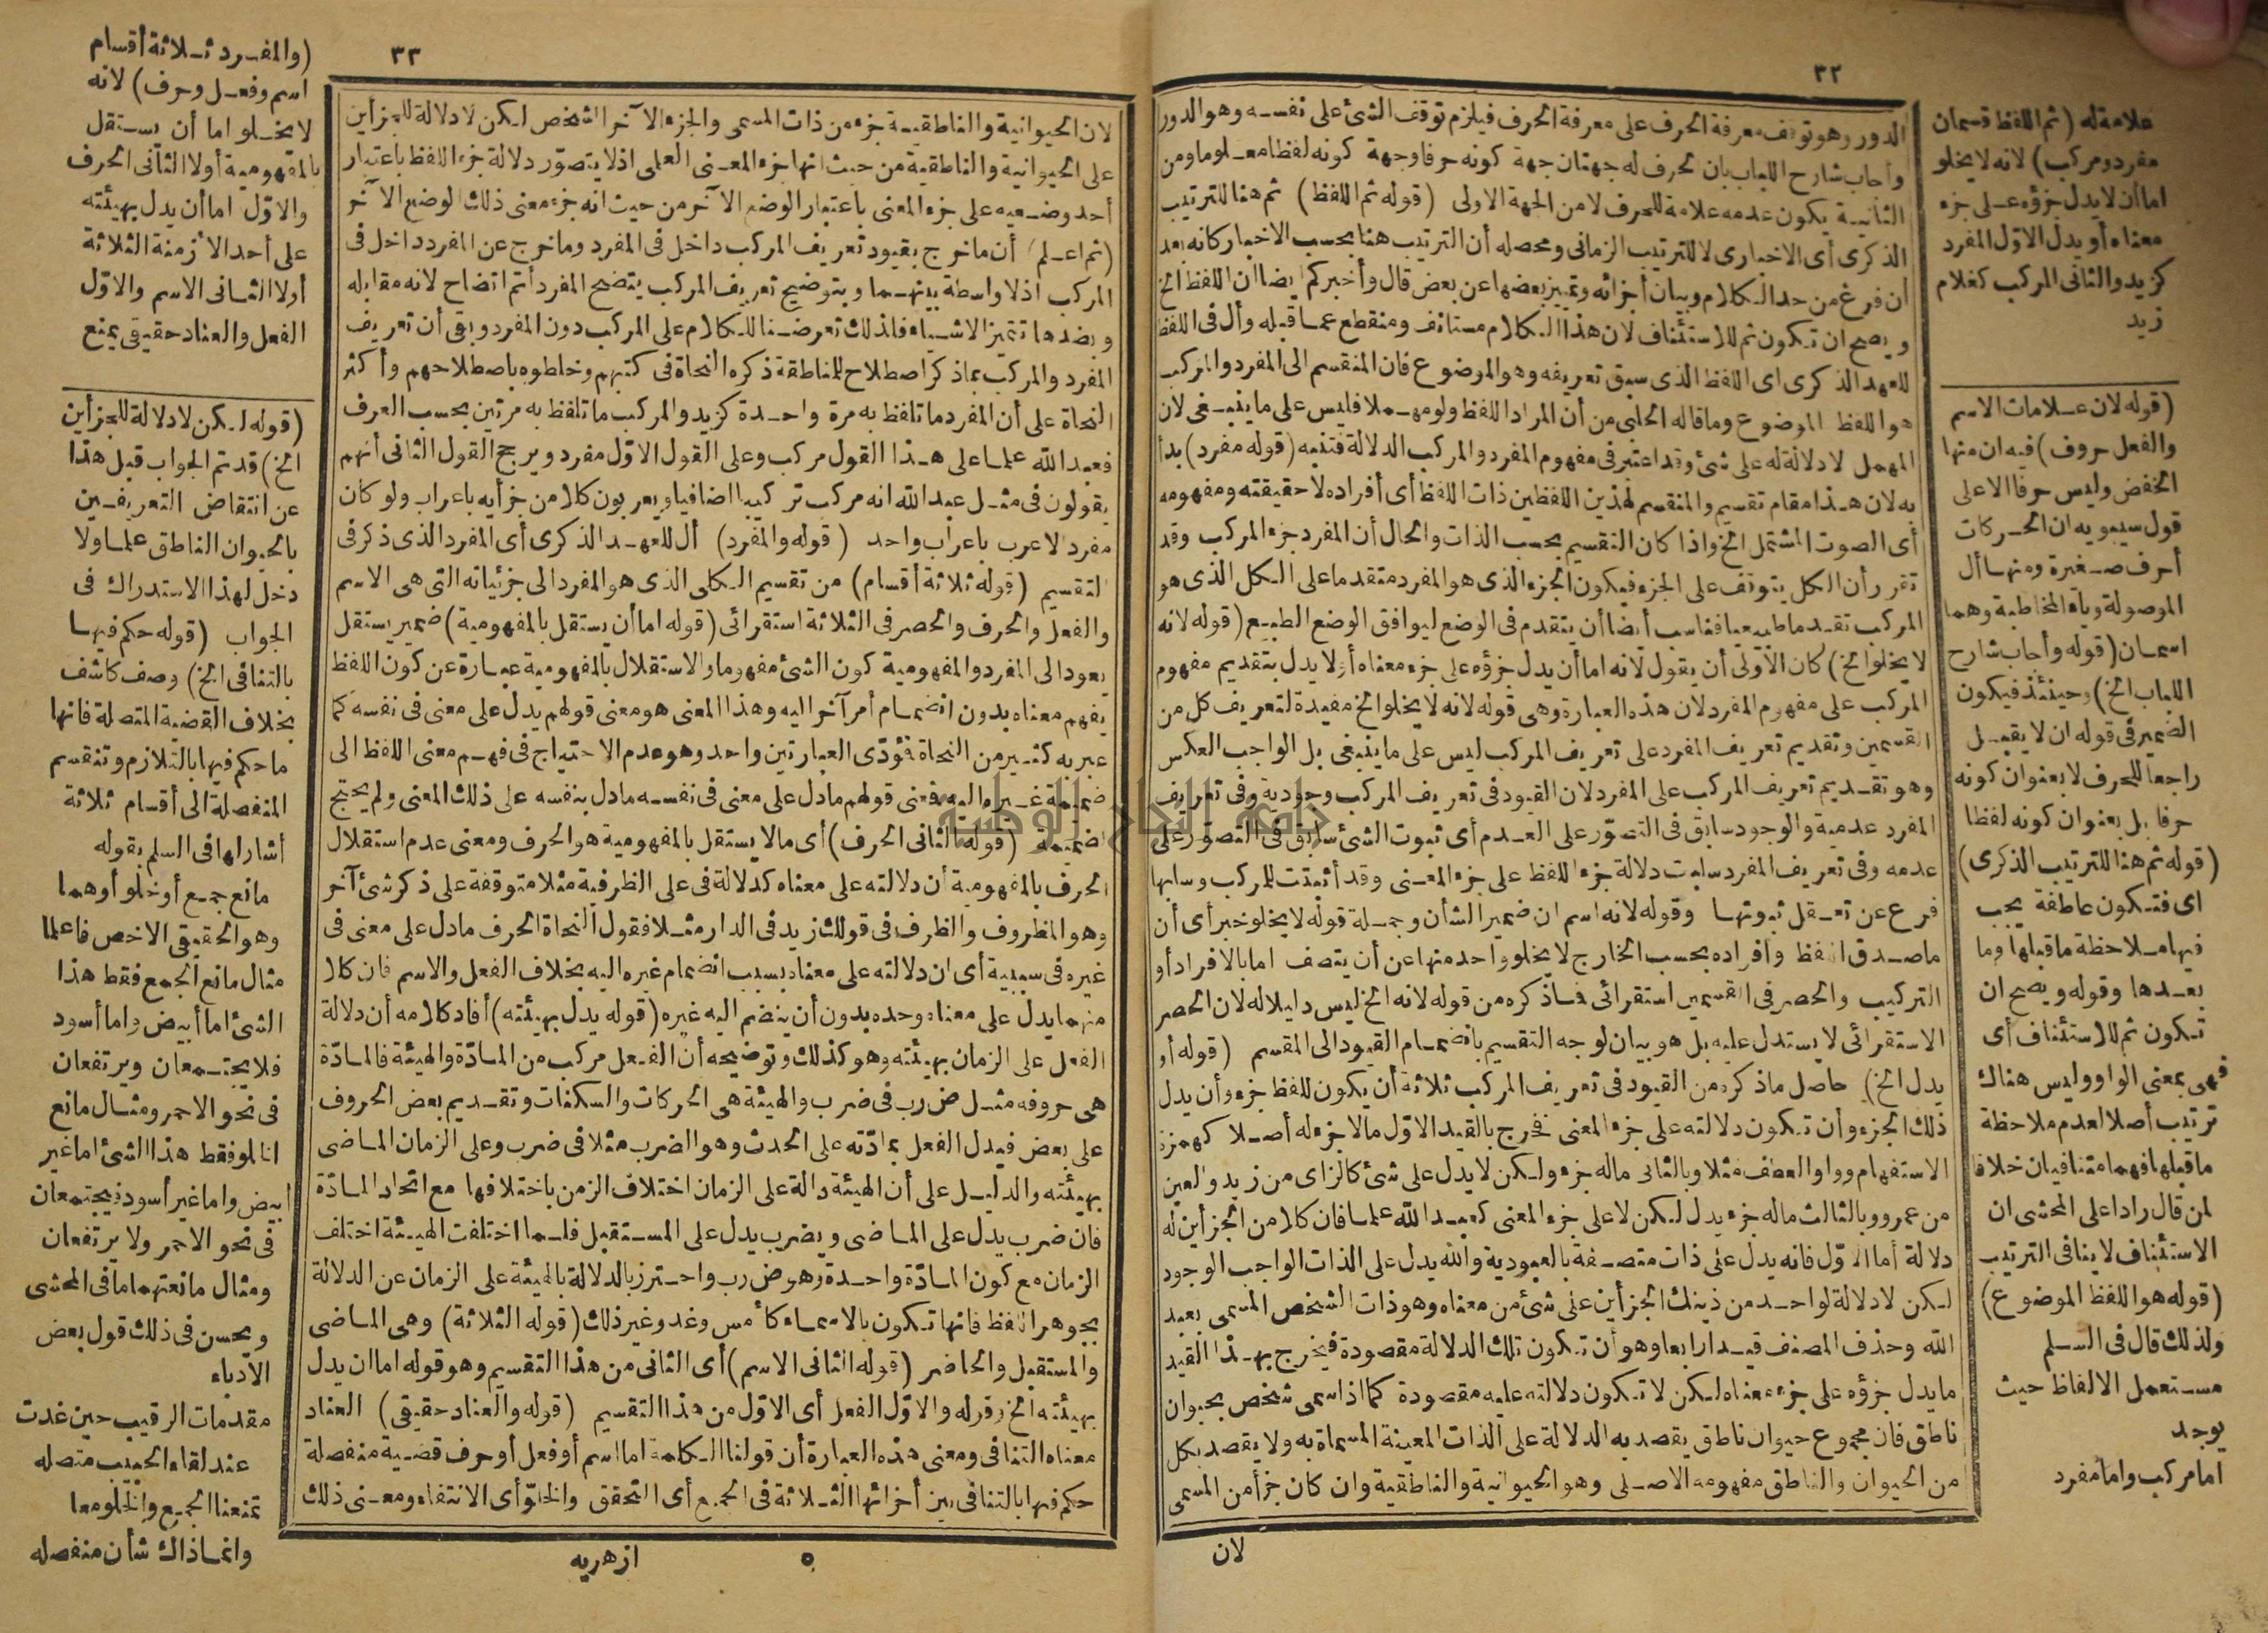 ٣٢
علامة له (ثم اللفظ قسمان
مفرد ومركب) لانه لا يخلو
اما أن لا يدل جزؤه على جزء
معناه أو يدل الاول المفرد
كزيد والثانى المركب كغلام
زيد
(قوله لان علامات الاسم
والفعل حروف) فيه ان منها
الخفض وليس حرفا الا على
قول سيبويه ان الحركات
أحرف صغيرة ومنها أل
الموصولة وياء المخاطبة وهما
اسمان (قوله وأجاب شارح
اللباب الخ) وحينئذ فيكون
الضمير فى قوله ان لا يقبل
راجعا للحرف لا بعنوان كونه
حرفا بل بعنوان كونه لفظا
(قوله ثم هنا للترتيب الذكرى)
اى فتكون عاطفة يجب
فيها ملاحظة ما قبلها وما
بعدها وقوله ويصح ان
تكون ثم للاستئناف أى
فهى بمعنى الواو وليس هناك
ترتيب أصلا لعدم ملاحظة
ما قبلها فهما متنافيان خلافا
لمن قال رادا على المحشى ان
الاستئناف لا ينافى الترتيب
(قوله هو اللفظ الموضوع)
ولذلك قال فى السلم
مستعمل الالفاظ حيث
يوجد
اما مركب واما مفرد
الدور وهو توقف معرفة الحرف على معرفة الحرف فيلزم توقف الشئ على نفسه وهو الدور
وأجاب شارح اللباب بان الحرف له جهتان جهة كونه حرفا وجهة كونه لفظا معلوما ومن
الثانية يكون عدمه علامة للحرف لا من الجهة الاولى (قوله ثم اللفظ) ثم هنا للترتيب
الذكرى أى الاخبارى لا للترتيب الزمانى ومحصله أن الترتيب هنا بحسب الاخبار كانه بعد
أن فرغ من حد الكلام وبيان أجزائه وتمييز بعضها عن بعض قال وأخبركم ايضا ان اللفظ الخ
ويصح ان تكون ثم للاستئناف لان هذا الكلام مستانف ومنقطع عما قبله وأل فى اللفظ
للعهد الذكرى اى اللفظ الذى سبق تعريفه وهو الموضوع فان المنقسم الى المفرد والمركب
هو اللفظ الموضوع وما قاله الحلبى من أن المراد اللفظ ولو مهملا فليس على ما ينبغى لان
المهمل لا دلالة له على شئ وقد اعتبر فى مفهوم المفرد والمركب الدلالة فتنبه (قوله مفرد) بدأ
به لان هذا مقام تقسيم والمنقسم لهذين اللفظين ذات اللفظ أى أفراده لا حقيقته ومفهومه
أى الصوت المشتمل الخ واذا كان التقسيم بحسب الذات والحال أن المفرد جزء المركب وقد
تقرر أن الكل يتوقف على الجزء فيكون الجزء الذى هو المفرد متقدما على الكل الذى هو
المركب تقدما طبيعيا فناسب أيضا أن يتقدم فى الوضع ليوافق الوضع الطبيع (قوله لانه
لا يخلو الخ) كان الاولى أن يقول لانه اما أن يدل جزؤه على جزء معناه أولا يدل بتقديم مفهوم
المركب على مفهوم المفرد لان هذه العبارة وهى قوله لانه لا يخلو الخ مفيدة لتعريف كل من
القسمين وتقديم تعريف المفرد على تعريف المركب ليس على ما ينبغى بل الواجب العكس
وهو تقديم تعريف المركب على المفرد لان القيود فى تعريف المركب وجودية وفى تعريف
المفرد عدمية والوجود سابق فى التصوّر على العدم أى ثبوت الشئ سابق فى التصوّر على
عدمه وفى تعريف المفرد سلبت دلالة جزء اللفظ على جزء المعنى وقد أثبتت للمركب وسلبها
فرع عن تعقل ثبوتها وقوله لانه اسم ان ضمير الشأن وجملة قوله لا يخلو خبر أى أن
ماصدق اللفظ وأفراده بحسب الخارج لا يخلو واحد منها عن أن يتصف اما بالافراد أو
التركيب والحصر فى القسمين استقرائى فما ذكره من قوله لانه الخ ليس دليلا له لان الحصر
الاستقرائى لا يستدل عليه بل هو بيان لوجه التقسيم بانضمام القيود الى المقسم (قوله أو
يدل الخ) حاصل ما ذكره من القيود فى تعريف المركب ثلاثة أن يكون للفظ جزء وأن يدل
ذلك الجزء وأن تكون دلالته على جزء المعنى فخرج بالقيد الاوّل ما لا جزء له أصلا كهمزة
الاستفهام وواو العطف مثلا وبالثانى ماله جزء ولكن لا يدل على شئ كالزاى من زيد والعين
من عمرو وبالثالث ماله جزء يدل لكن لا على جزء المعنى كعبد الله علما فان كلا من الجزأين له
دلالة أما الاوّل فانه يدل على ذات متصفة بالعبودية والله يدل على الذات الواجب الوجود
لكن لا دلالة لواحد من ذينك الجزأين على شئ من معناه وهو ذات الشخص المسمى بعبد
الله وحذف المصنف قيدا رابعا وهو أن تكون تلك الدلالة مقصودة فيخرج بهذا القيد
ما يدل جزؤه على جزء معناه لكن لا تكون دلالته عليه مقصودة كما اذا سمى شخص بحيوان
ناطق فان مجموع حيوان ناطق يقصد به الدلالة على الذات المعينة المسماة به ولا يقصد بكل
من الحيوان والناطق مفهومه الاصلى وهو الحيوانية والناطقية وان كان جزأ من المسمى
لان
٣٣
لان الحيوانية والناطقية جزء من ذات المسمى والجزء الآخر التشخص لكن لا دلالة للجزأين
على الحيوانية والناطقية من حيث انها جزء المعنى العلمى اذ لا يتصوّر دلالة جزء اللفظ باعتبار
أحد وضعيه على جزء المعنى باعتبار الوضع الآخر من حيث انه جزء معنى ذلك الوضع الآخر
(ثم اعلم) أن ما خرج بقيود تعريف المركب داخل فى المفرد وما خرج عن المفرد داخل فى
المركب اذ لا واسطة بينهما وبتوضيح تعريف المركب يتضح المفرد أتم اتضاح لانه مقابله
وبضدها تتميز الاشياء فلذلك تعرضنا للكلام على المركب دون المفرد وبقى أن تعريف
المفرد والمركب بما ذكر اصطلاح للمناطقة ذكره النحاة فى كتبهم وخلطوه باصطلاحهم وأكثر
النحاة على أن المفرد ما تلفظ به مرة واحدة كزيد والمركب ما تلفظ به مرتين بحسب العرف
فعبد الله علما على هذا القول مركب وعلى القول الاوّل مفرد ويرجح القول الثانى أنهم
يقولون فى مثل عبد الله انه مركب تركيبا اضافيا ويعربون كلا من جزأيه باعراب ولو كان
مفردا لاعرب باعراب واحد (قوله والمفرد) أل للعهد الذكرى أى المفرد الذى ذكر فى
التقسيم (قوله ثلاثة أقسام) من تقسيم الكلى الذى هو المفرد الى جزئياته التى هى الاسم
والفعل والحرف والحصر فى الثلاثة استقرائى (قوله اما أن يستقل بالمفهومية) ضمير يستقل
يعود الى المفرد والمفهومية كون الشئ مفهوما والاستقلال بالمفهومية عبارة عن كون اللفظ
يفهم معناه بدون انضمام أمر آخر اليه وهذا المعنى هو معنى قولهم يدل على معنى فى نفسه كما
عبر به كثير من النحاة فمؤدّى العبارتين واحد وهو عدم الاحتياج فى فهم معنى اللفظ الى
ضميمة غيره اليه فمعنى قولهم ما دل على معنى فى نفسه ما دل بنفسه على ذلك المعنى ولم يحتج
لضميمة (قوله الثانى الحرف) أى ما لا يستقل بالمفهومية هو الحرف ومعنى عدم استقلال
الحرف بالمفهومية أن دلالته على معناه كدلالة فى على الظرفية مثلا متوقفة على ذكر شئ آخر
وهو المظروف والظرف فى قولك زيد فى الدار مثلا فقول النحاة الحرف ما دل على معنى فى
غيره فى سببية أى ان دلالته على معناه بسبب انضمام غيره اليه بخلاف الفعل والاسم فان كلا
منهما يدل على معناه وحده بدون أن ينضم اليه غيره (قوله يدل بهيئته) أفاد كلامه أن دلالة
الفعل على الزمان بهيئته وهو كذلك وتوضيحه أن الفعل مركب من المادّة والهيئة فالمادّة
هى حروفه مثل ض رب فى ضرب والهيئة هى الحركات والسكنات وتقديم بعض الحروف
على بعض فيدل الفعل بمادّته على الحدث وهو الضرب مثلا فى ضرب وعلى الزمان الماضى
بهيئته والدليل على أن الهيئة دالة على الزمان اختلاف الزمن باختلافها مع اتحاد المادّة
فان ضرب يدل على الماضى ويضرب يدل على المستقبل فلما اختلفت الهيئة اختلف
الزمان مع كون المادّة واحدة وهو ض رب واحترز بالدلالة بالهيئة على الزمان عن الدلالة
بجوهر اللفظ فانها تكون بالاسماء كأمس وغد وغير ذلك (قوله الثلاثة) وهى الماضى
والمستقبل والحاضر (قوله الثانى الاسم) أى الثانى من هذا التقسيم وهو قوله اما ان يدل
بهيئته الخ وقوله والاوّل الفعل أى الاوّل من هذا التقسيم (قوله والعناد حقيقى) العناد
معناه التنافى ومعنى هذه العبارة أن قولنا الكلمة اما اسم أو فعل أو حرف قضية منفصلة
حكم فيها بالتنافى بين أجزائها الثلاثة فى الجمع أى التحقق والخلوّ أى الانتفاء ومعنى ذلك
(والمفرد ثلاثة أقسام
اسم وفعل وحرف) لانه
لا يخلو اما أن يستقل
بالمفهومية أولا الثانى الحرف
والاوّل اما أن يدل بهيئته
على أحد الازمنة الثلاثة
أولا الثانى الاسم والاوّل
الفعل والعناد حقيقى يمنع
(قوله لكن لا دلالة للجزأين
الخ) قد تم الجواب قبل هذا
عن انتقاض التعريفين
بالحيوان الناطق علما ولا
دخل لهذا الاستدراك فى
الجواب (قوله حكم فيها
بالتنافى الخ) وصف كاشف
بخلاف القضية المتصلة فانها
ما حكم فيها بالتلازم وتنقسم
المنفصلة الى أقسام ثلاثة
أشار لها فى السلم بقوله
مانع جمع أو خلو أوهما
وهو الحقيقى الاخص فاعلما
مثال مانع الجمع فقط هذا
الشئ اما أبيض واما أسود
فلا يجتمعان ويرتفعان
فى نحو الاحمر ومثال مانع
الخلو فقط هذا الشئ اما غير
أبيض واما غير أسود فيجتمعان
فى نحو الاحمر ولا يرتفعان
ومثال مانعتهما ما فى المحشى
ويحسن فى ذلك قول بعض
الادباء
مقدمات الرقيب حين غدت
عند لقاء الحبيب متصله
تمنعنا الجمع والخلو معا
وانما ذاك شأن منفصله
٥ ازهريه
جامعة النجاح الوطنية